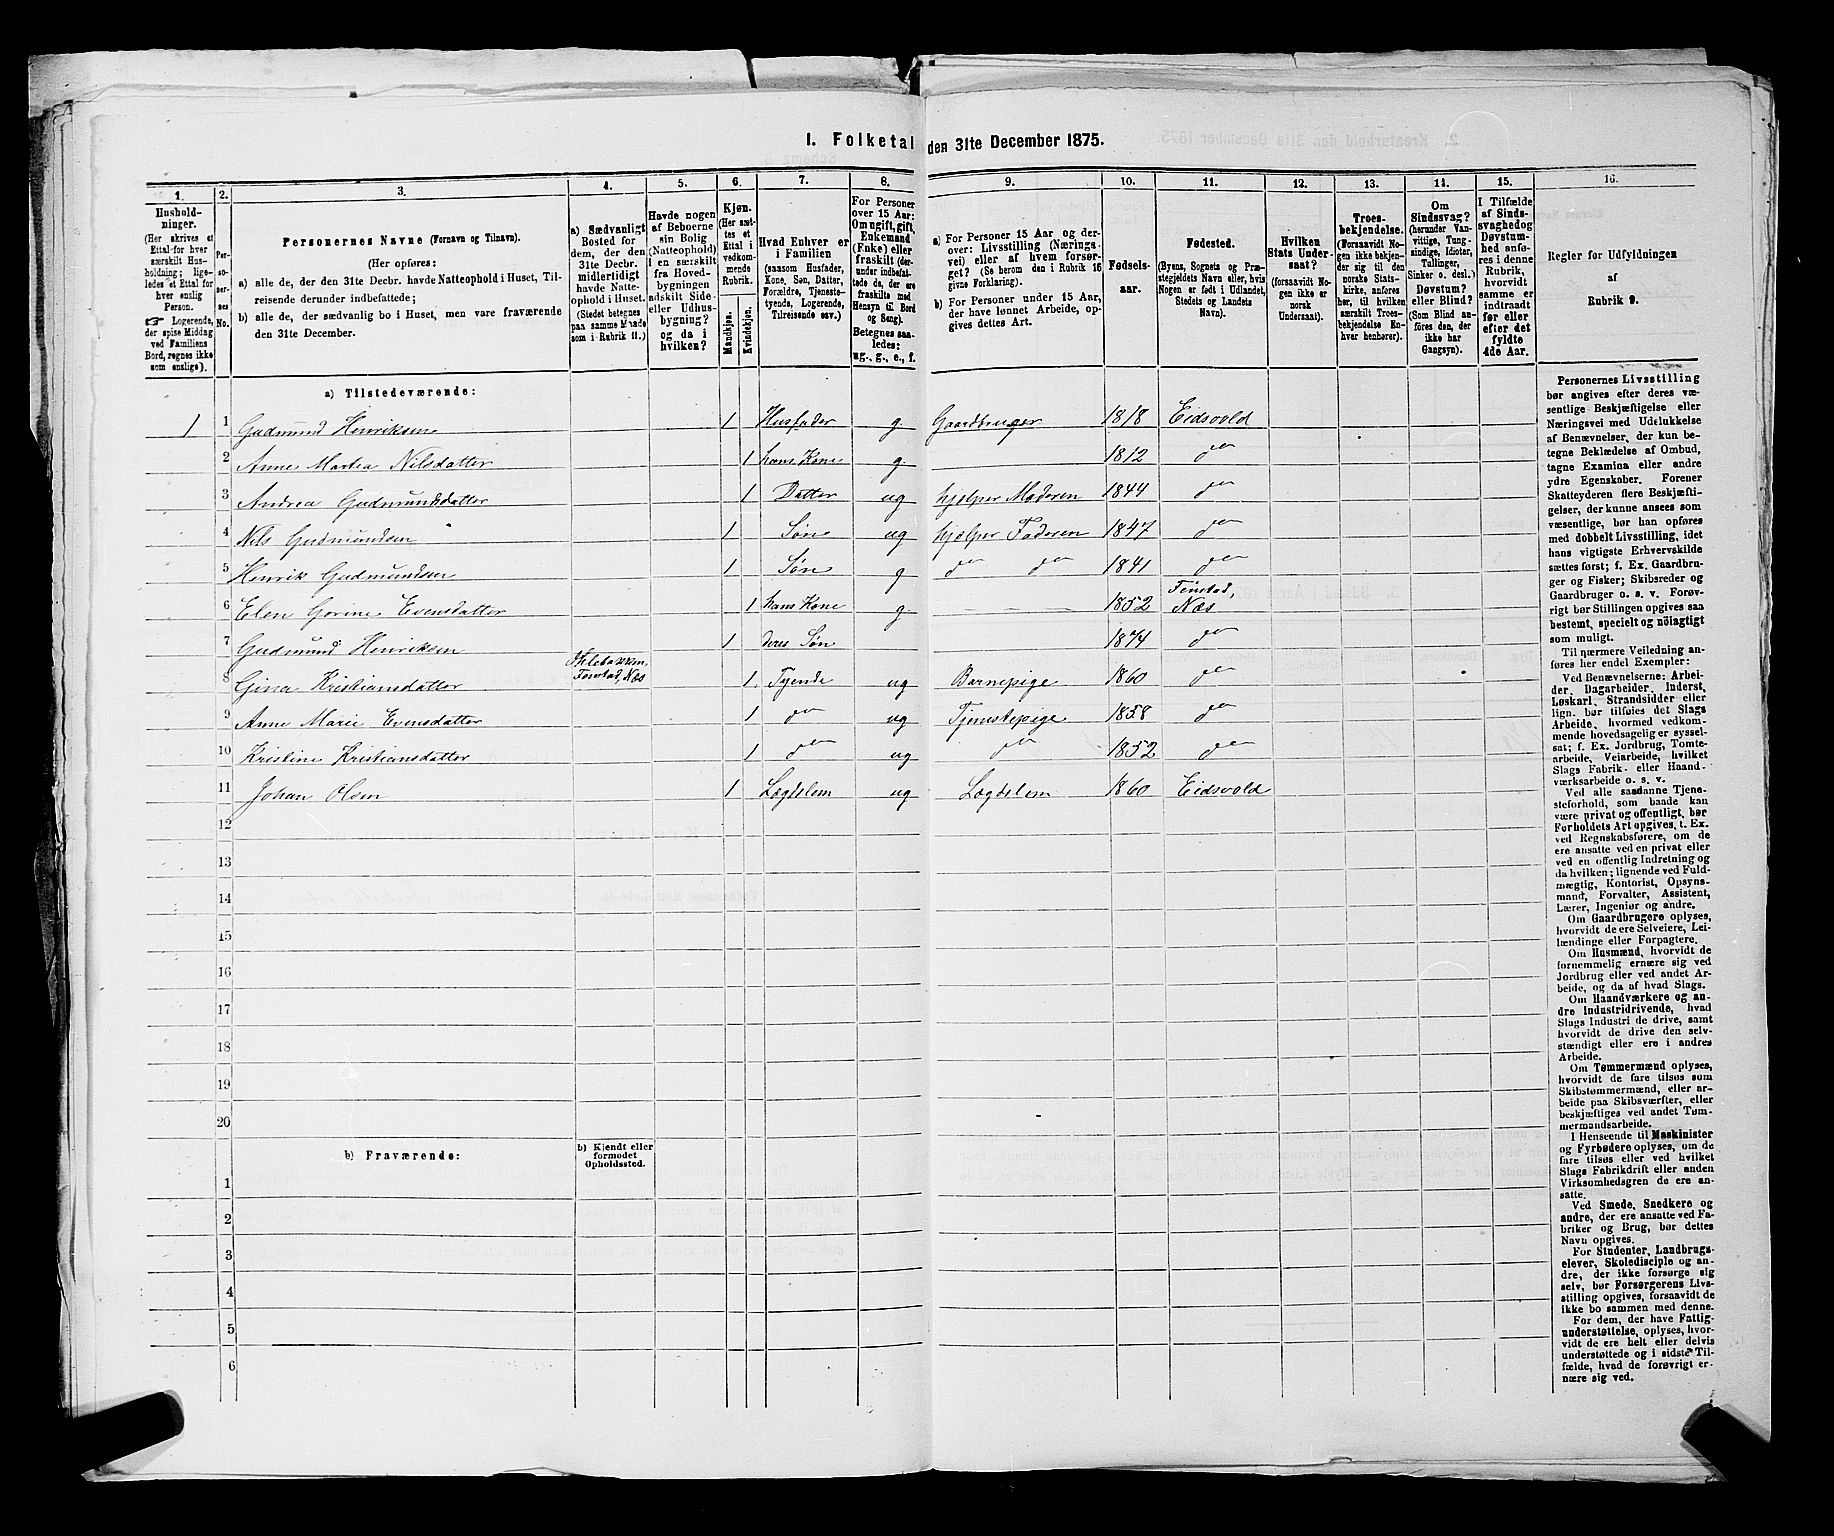 I. Folketal den 31te December 1875.
1. 2. 3. 4. 5. 6. 7. 8. 9. 10. 11. 12. 13. 14. 15. 16.
Hushold-
ninger.
(Her skrives et
Ettal for hver
særskilt Hus-
holdning; lige-
ledes et Ettal for
hver enslig
Person.
☞ Logerende,
der spise Middag
ved Familiens
Bord, regnes ikke
som enslige).
Per-
so-
ner-
nes
No.
Personernes Navne (Fornavn og Tilnavn).
(Her opføres:
a) alle de, der den 31te Decbr. havde Natteophold i Huset, Til-
reisende derunder indbefattede;
b) alle de, der sædvanlig bo i Huset, men vare fraværende
den 31te December.
a) Sædvanligt
Bosted for
dem, der den
31te Decbr.
midlertidigt
havde Natte-
ophold i Huset.
(Stedet betegnes
paa samme Maade
som i Rubrik 11.)
Havde nogen
af Beboerne
sin Bolig
(Natteophold)
i en særskilt
fra Hoved-
bygningen
adskilt Side-
eller Udhus-
bygning?
og da i
hvilken?
Kjøn.
(Her sæt-
tes et
Ettal i
vedkom-
mende
Rubrik.
Mandkjøn.
Kvindekjøn.
Hvad Enhver er
i Familien
(saasom Husfader,
Kone, Søn, Datter,
Forældre, Tjeneste-
tyende, Logerende,
Tilreisende osv.)
For Personer
over 15 Aar:
Om ugift, gift,
Enkemand
(Enke) eller
fraskilt (der-
under indbefat-
tede de, der ere
fraskilte med
Hensyn til Bord
og Seng).
Betegnes saa-
ledes:
ug., g., e., f.
a) For Personer 15 Aar og der-
over: Livsstilling (Nærings-
vei) eller af hvem forsør-
get? (Se herom den i Rubrik 16
givne Forklaring).
b) For Personer under 15 Aar,
der have lønnet Arbeide, op-
gives dettes Art.
Fødsels-
aar.
Fødested.
(Byens, Sognets og Præ-
stegjeldets Navn eller, hvis
Nogen er født i Udlandet,
Stedets og Landets
Navn).
Hvilken
Stats Under-
saat?
(forsaavidt No-
gen ikke er
norsk
Undersaat).
Troes-
bekjendelse.
(Forsaavidt No-
gen ikke bekjen-
der sig til den
norske Stats-
kirke, anføres
her, til hvilken
særskilt Troes-
bekjendelse En-
hver henhører).
Om
Sindssvag?
(herunder Van-
vittige, Tung-
sindige, Idioter,
Tullinger,
Sinker o. desl.)
Døvstum?
eller Blind?
(Som Blind an-
føres den, der
ikke har
Gangsyn).
I Tilfælde
af Sinds-
svaghed og
Døvstum-
hed anfø-
res i denne
Rubrik,
hvorvidt
samme er
indtraadt
før eller
efter det
fyldte
4de Aar.
Regler for Udfyldningen
af
Rubrik 9.
a) Tilstedeværende:
1 1 Gudmund Henriksen 1 Husfader g Gaardbruger 1818 Eidsvold
2 Anne Martea Nilsdatter 1 hans Kone g 1812 do
3 Andrea Gudmundsdatter 1 Datter ug hjælper Moderen 1844 do
4 Nils Gudmundsen 1 Søn ug hjælper Faderen 1847 do
5 Henrik Gudmundsen 1 Søn g do do 1841 do
6 Elen Gorine Evensdatter 1 hans Kone g 1852 Fenstad, Næs
7 Gudmund Henriksen 1 deres Søn 1874 do
8 Gina Kristiansdatter Fenstad, Næs 1 Tyende ug Barnepige 1860 do
9 Anne Marie Evensdatter 1 do ug Tjenestepige 1858 do
10 Kristine Kristiansdatter 1 do ug do 1852 do
11 Johan Olsen 1 Lægdslem ug Lægdslem 1860 Eidsvold
12
13
14
15
16
17
18
19
20
b) Fraværende:
b) Kjendt eller
formodet
Opholdssted.
1
2
3
4
5
6
Personernes Livsstilling
bør angives efter deres væ-
sentlige Beskjæftigelse eller
Næringsvei med Udelukkelse
af Benævnelser, der kun be-
tegne Beklædelse af Ombud,
tagne Examina eller andre
ydre Egenskaber. Forener
Skatteyderen flere Beskjæfti-
gelser, der kunne ansees som
væsentlige, bør han opføres
med dobbelt Livsstilling, idet
hans vigtigste Erhvervskilde
sættes først; f. Ex. Gaardbru-
ger og Fisker; Skibsreder og
Gaardbruger o. s. v. Forøv-
rigt bør Stillingen opgives saa
bestemt, specielt og nöiagtigt
som muligt.
Til nærmere Veiledning an-
føres her endel Exempler:
Ved Benævnelserne: Arbei-
der, Dagarbeider, Inderst,
Løskarl, Strandsidder eller
lign. bør tilføies det Slags
Arbeide, hvormed vedkom-
mende hovedsagelig er syssel-
sat; f. Ex. Jordbrug, Tomte-
arbeide, Veiarbeide, hvilket
Slags Fabrik- eller Haand-
værksarbeide o. s. v.
Ved alle saadanne Tjene-
steforhold, som baade kan
være privat og offentligt, bør
Forholdets Art opgives, t. Ex.
ved Regnskabsførere, om de
ere ansatte ved en privat eller
ved en offentlig Indretning og
da hvilken; lignende ved Fuld-
mægtig, Kontorist, Opsyns-
mand, Forvalter, Assistent,
Lærer, Ingeniør og andre.
Om Gaardbrugere oplyses,
hvorvidt de ere Selveiere, Lei-
lændinge eller Forpagtere.
Om Husmænd, hvorvidt de
fornemmelig ernære sig ved
Jordbrug eller ved andet Ar-
beide, og da af hvad Slags.
Om Haandværkere og an-
dre Industridrivende, hvad
Slags Industri de drive, samt
hvorvidt de drive den selv-
stændigt eller ere i andres
Arbeide.
Om Tømmermænd oplyses,
hvorvidt de fare tilsøs som
Skibstømmermænd, eller ar-
beide paa Skibsværfter, eller
beskjæftiges ved andet Tøm-
mermandsarbeide.
I Henseende til Maskinister
og Fyrbødere oplyses, om de
fare tilsøs eller ved hvilket
Slags Fabrikdrift eller anden
Virksomhedsgren de ere an-
satte.
Ved Smede, Snedkere og
andre, der ere ansatte ved Fa-
briker og Brug, bør dettes
Navn opgives.
For Studenter, Landbrugs-
elever, Skoledisciple og an-
dre, der ikke forsørge sig
selv, bør Forsørgerens Livs-
stilling opgives, forsaavidt de
ikke bo sammen med denne.
For dem, der have Fattig-
understøttelse, oplyses, hvor-
vidt de ere helt eller delvis
understøttede og i sidste Til-
fælde, hvad de forøvrigt er-
nære sig ved.